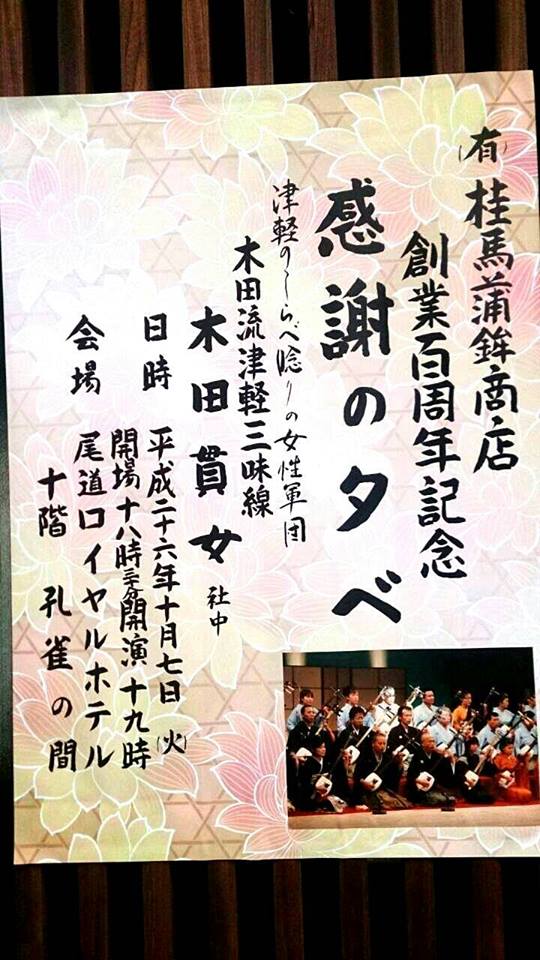 (有)桂馬蒲鉾商店
創業百周年記念
感謝の夕べ
津軽のしらべ唸りの女性軍団
木田流津軽三味線
木田貫女社中
日時 平成二十六年十月七日(火)
開場十八時三十分開演十九時
会場 尾道ロイヤルホテル
十階 孔雀の間